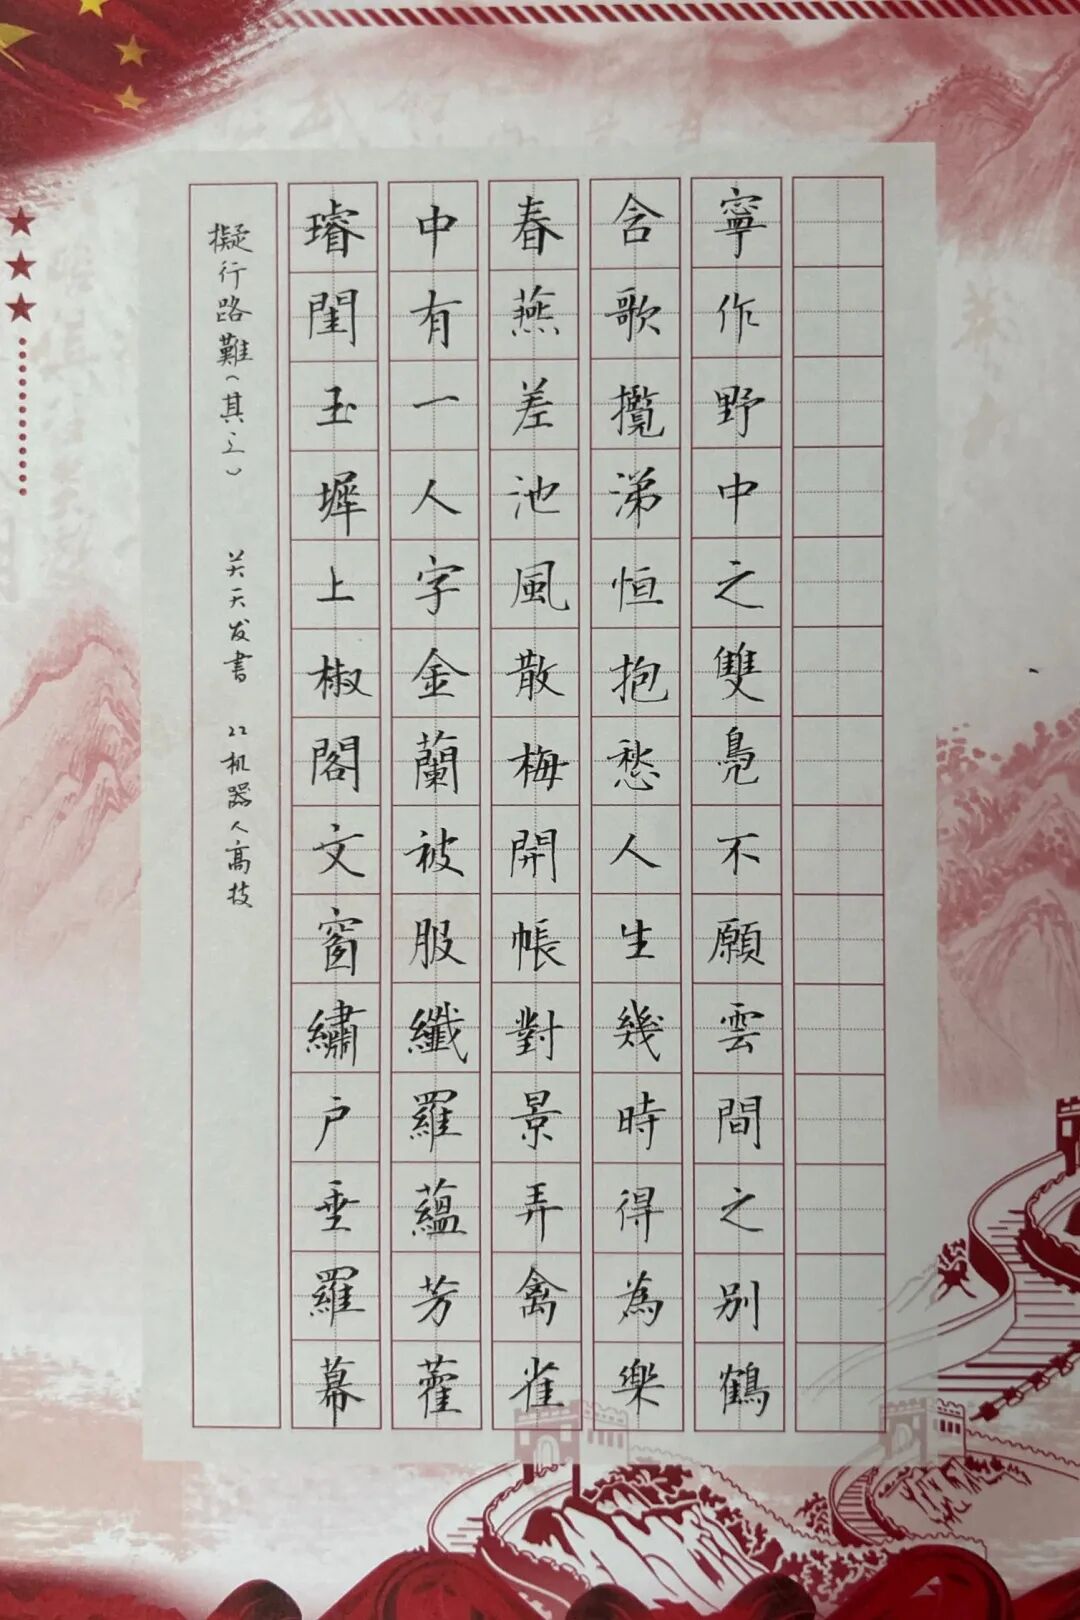 擬行路難（其三） 关天发書 22机器人高技
璿閨玉墀上椒閣文窗繡户垂羅幕
中有一人字金蘭被服纖羅蘊芳藿
春燕差池風散梅開帳對景弄禽雀
含歌攬涕恒抱愁人生幾時得為樂
寧作野中之雙鳧不願雲間之别鶴